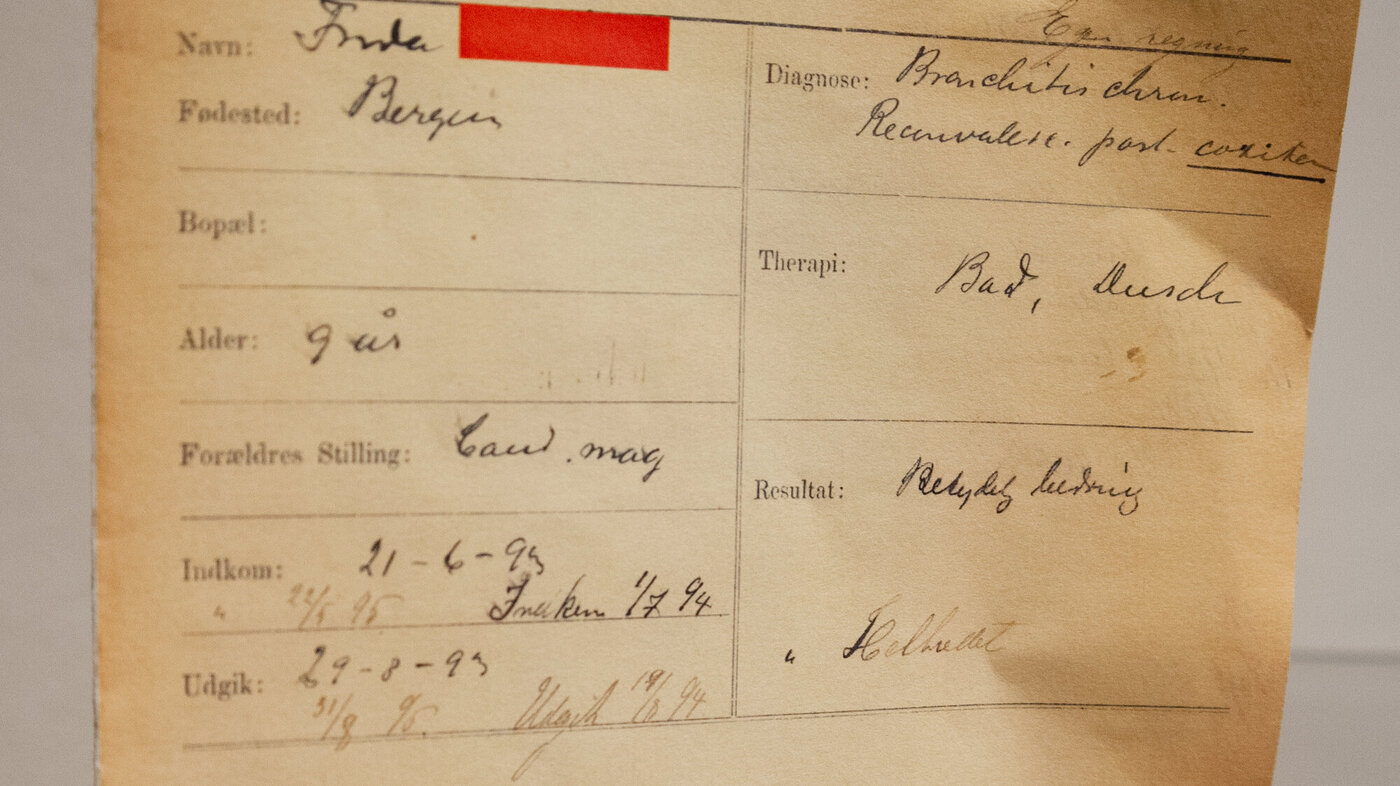 Egen regning
Navn: Frida
Fødested: Bergen
Bopæl:
Alder: 9 år
Forældres Stilling: Cand. mag
Indkom: 21-6-93
" 22/5 95 Indkom 1/7 94
Udgik: 29-8-93
31/8 95. Udgik 94
Diagnose: Bronchitis chron.
Reconvalesc. post coxiten
Therapi: Bad, Dusch
Resultat: Betydelig bedring
" Helbredet